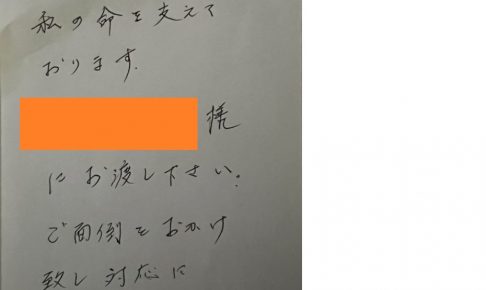 私の命を支えて
おります.
様
にお渡し下さい.
ご面倒をおかけ
致し対応に